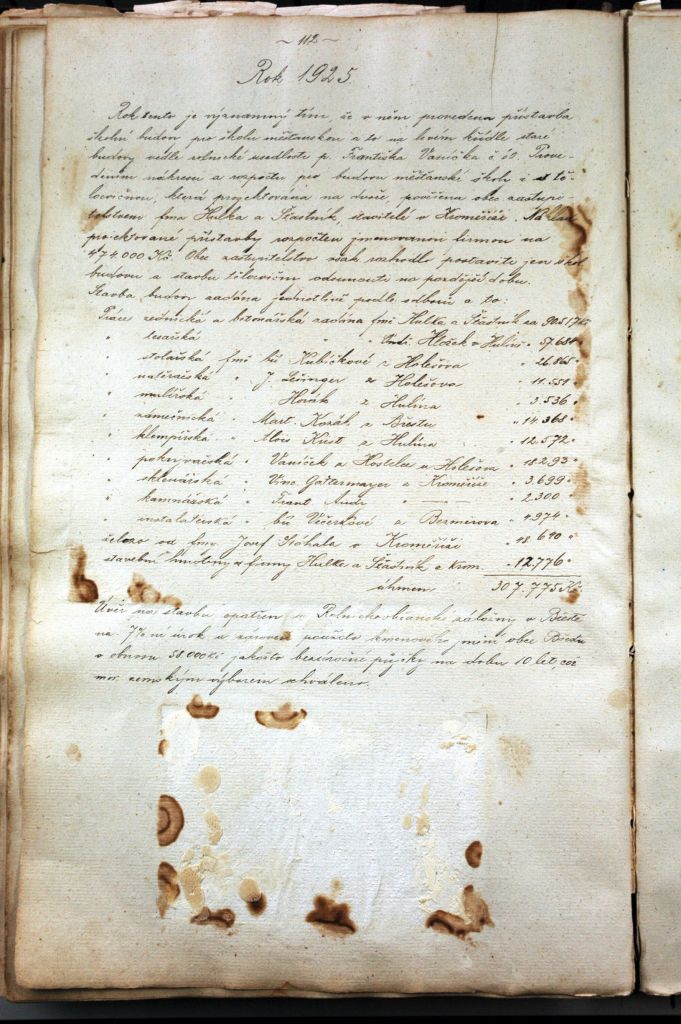 ~ 112 ~
Rok 1925
Rok tento je významným tím, že v něm provedena přístavba
školní budov pro školu měšťanskou a to na levém křídle staré
budovy vedle rolnické usedlosti p. Františka Vaníčka č 60. Prove-
dením nákresu a rozpočtu pro budovu měšťanské školy i s tě-
locvičnou, která projektována na dvoře, pověřena obec. zastupi-
telstvem fma Hulka a Šťastník, stavitelé v Kroměříži. Náklad
projektované přístavby rozpočten jmenovanou firmou na
474.000 Kč. Obec. zastupitelstvo však rozhodlo postaviti jen škol.
budovu a stavbu tělocvičny odsunouti na pozdější dobu.
Stavba budov zadána jednotlivě podle odborů a to:
Práce zednická a betonářská zadána fmě Hulka a Šťastník za 90517 Kč
" tesařská " " Hložek v Hulíně " 57.681 "
" stolařská fmě bří Kubíčkové z Holešova " 26.865 "
" natěračská " J. Lesinger z Holešova " 11.551 "
" malířská " Horák z Hulína " 3.536 "
" zámečnická " Mart. Kozák z Břestu " 14.368 "
" klempířská " Alois Kust z Hulína " 12.572 "
" pokryvačská " Vaníček a Hostela z Holešova " 18.293 "
" sklenářská " Vinc. Gattermayer z Kroměříže " 3.699 "
" kamnářská " Frant. " 2.300 "
" instalatérská " bří Večerkové z Bezměrova " 4.974 "
železo od fmy Josef Stöhala v Kroměříži " 48.640 "
stavební hmotiny z firmy Hulka a Šťastník z Krom. " 12.776 "
úhrnem 307.775 Kč
Úvěr na stavbu opatřen u Rolnickoobčanské záložny v Břestě
na 7% úrok a zároveň použito kmenového jmění obce Břestu
v obnosu 58.000 Kč jakožto bezúročné půjčky na dobu 10 let, což
mor. zemským výborem schváleno.